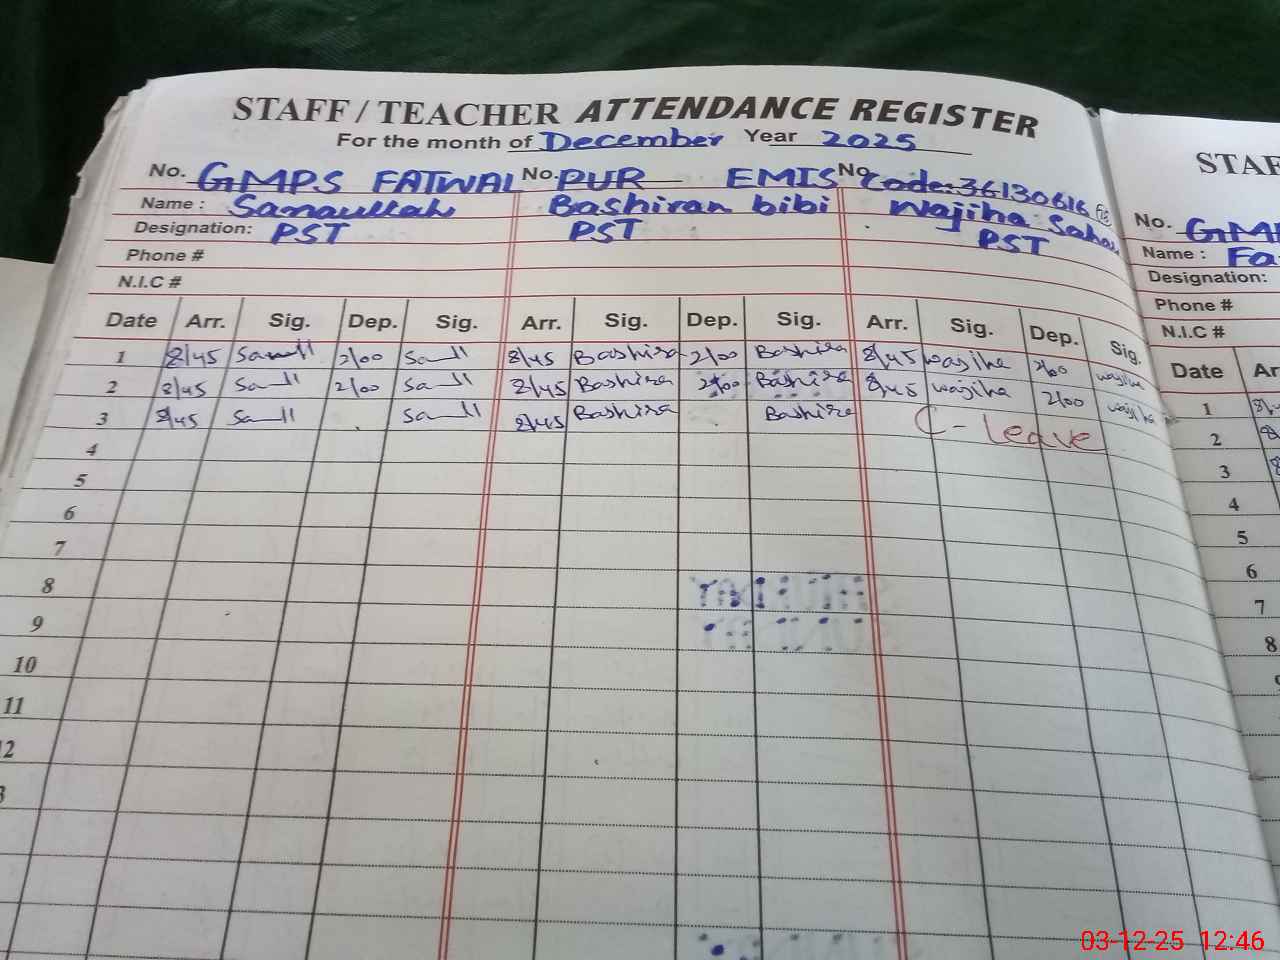 STAFF / TEACHER ATTENDANCE REGISTER
For the month of December Year 2025
No. GMPS FATWAL No. PUR EMIS No code:36130616
Name : Sanaullah Bashiran bibi Wajiha Sahar
Designation: PST PST PST
Phone #
N.I.C #
Date Arr. Sig. Dep. Sig. Arr. Sig. Dep. Sig. Arr. Sig. Dep. Sig.
1 8/45 Sanall 2/00 Sanll 8/45 Bashira 2/00 Bashira 8/45 wajiha 2/00 wajiha
2 8/45 Sanll 2/00 Sanll 8/45 Bashira 2/00 Bashira 8/45 wajiha 2/00 wajiha
3 8/45 Sanll Sanll 8/45 Bashira Bashira C-leave
4
5
6
7
8
9
10
11
12
3
STAF
No. GMP
Name : Fa
Designation:
Phone #
N.I.C #
Date Arr
1 8/
2 8
3 8
4
5
6
7
8
03-12-25 12:46